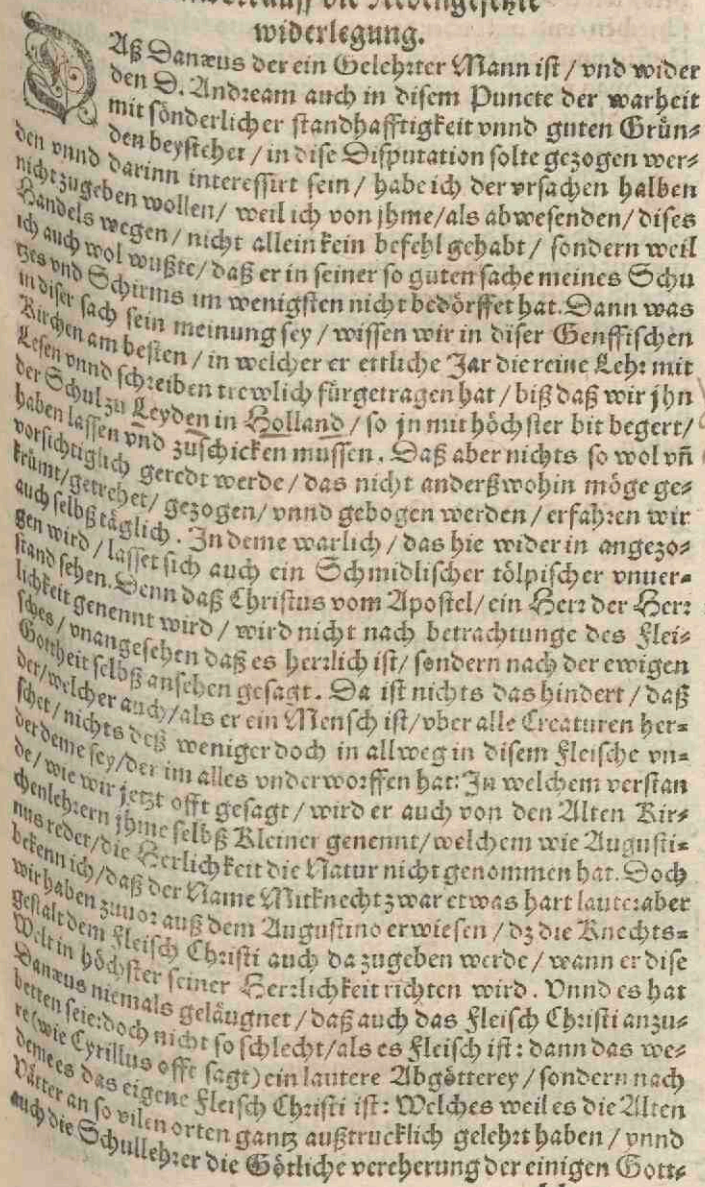 widerlegung.
DAß Danæus der ein Gelehrter Mann ist / vnd wider
den D. Andream auch in disem Puncte der warheit
mit sönderlicher standhafftigkeit vnnd guten Grün-
den beystehet / in dise Disputation solte gezogen wer-
den vnnd darinn interessirt sein / habe ich der vrsachen halben
nicht zugeben wollen / weil ich von jhme / als abwesenden / dises
Handels wegen / nicht allein kein befehl gehabt / sondern weil
ich auch wol wußte / daß er in seiner so guten sache meines Schu
tzes vnd Schirms im wenigsten nicht bedörffet hat. Dann was
in diser sach sein meinung sey / wissen wir in diser Genffischen
Kirchen am besten / in welcher er ettliche Jar die reine Lehr mit
Lesen vnnd schreiben trewlich fürgetragen hat / biß daß wir jhn
der Schul zu Leyden in Holland / so jn mit höchster bit begert /
haben lassen vnd zuschicken mussen. Daß aber nichts so wol vñ
vorsichtiglich geredt werde / das nicht anderßwohin möge ge-
krümt / getrehet / gezogen / vnnd gebogen werden / erfahren wir
auch selbß täglich. In deme warlich / das hie wider in angezo-
gen wird / lasset sich auch ein Schmidlischer tölpischer vnuer-
stand sehen. Denn daß Christus vom Apostel / ein Herr der Herr
lichkeit genennt wird / wird nicht nach betrachtunge des Flei-
sches / vnangesehen daß es herrlich ist / sondern nach der ewigen
Gottheit selbß ansehen gesagt. Da ist nichts das hindert / daß
der / welcher auch / als er ein Mensch ist / vber alle Creaturen her-
schet / nichts deß weniger doch in allweg in disem Fleische vn-
der deme sey / der im alles vnderworffen hat: In welchem verstan
de / wie wir jetzt offt gesagt / wird er auch von den Alten Kir-
chenlehrern jhme selbß Kleiner genennt / welchem wie Augusti-
nus redet / die Herlichkeit die Natur nicht genommen hat. Doch
bekenn ich / daß der Name Mitknecht zwar etwas hart lauter: aber
wir haben zuvor auß dem Augustino erwiesen / dz die Knechts-
gestalt dem Fleisch Christi auch da zugeben werde / wann er dise
Welt in höchster seiner Herrlichkeit richten wird. Vnnd es hat
Danæus niemals geläugnet / daß auch das Fleisch Christi anzu-
betten seie: doch nicht so schlecht / als es Fleisch ist: dann das we-
re (wie Cyrillus offt sagt) ein lautere Abgötterey / sondern nach
deme es das eigene Fleisch Christi ist: Welches weil es die Alten
Vätter an so vilen orten gantz außtrucklich gelehrt haben / vnnd
auch die Schullehrer die Götliche vereherung der einigen Gott-